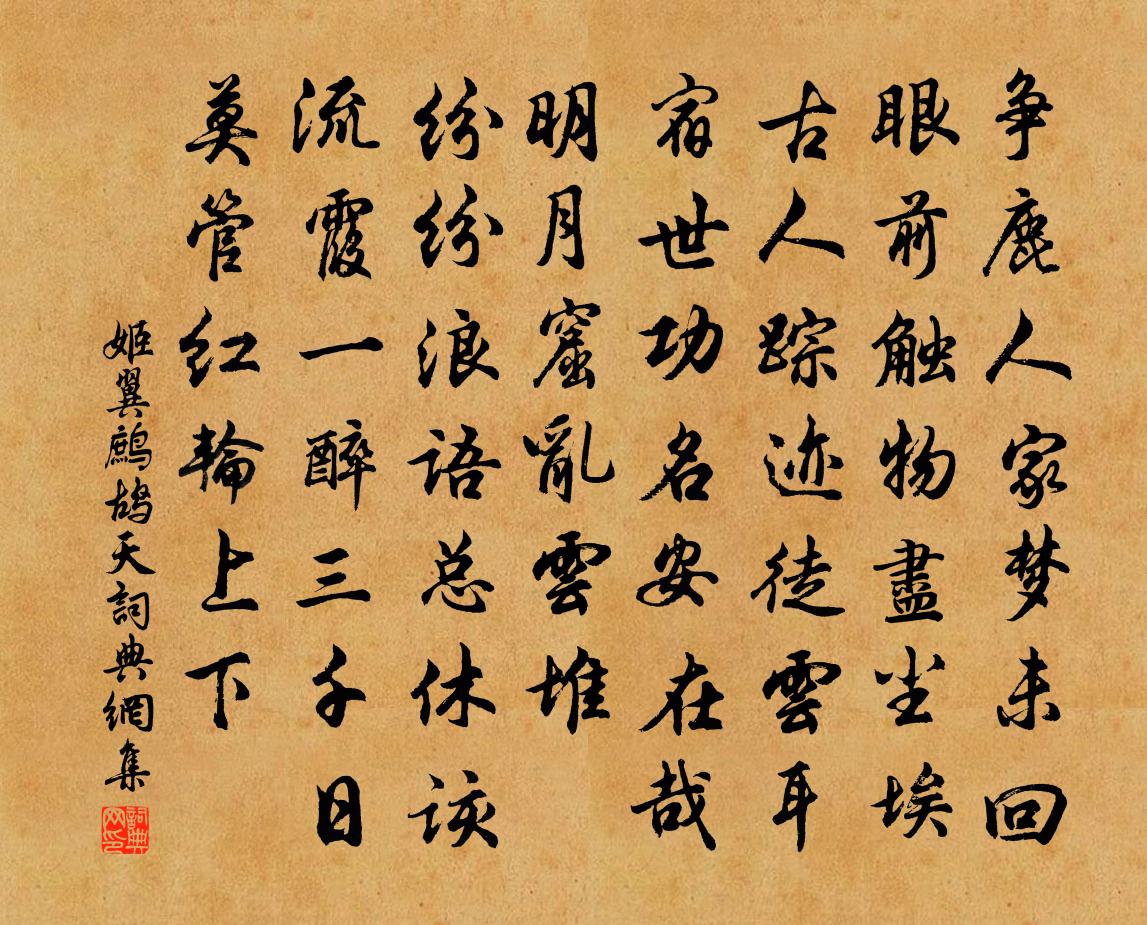 争鹿人家梦未回
眼前触物盡尘埃
古人踪迹徒雲耳
宿世功名安在哉
明月窟亂雲堆
纷纷浪语总休谈
流霞一醉三千日
莫管红輪上下
姬翼鷓鸪天詞典網集
詞典网印